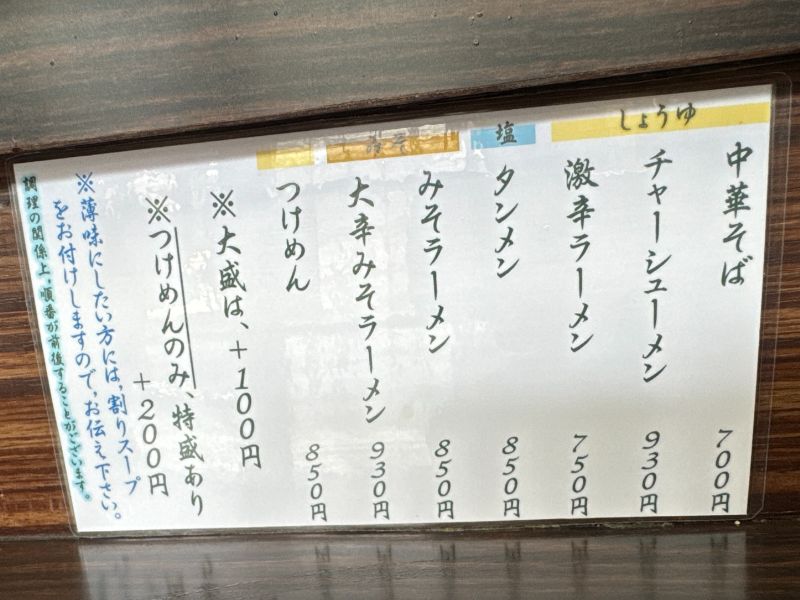 しょうゆ
中華そば 700円
チャーシューメン 930円
激辛ラーメン 750円
塩
タンメン 850円
みそ
みそラーメン 850円
大辛みそラーメン 930円
つけめん 850円
※大盛は、+100円
※つけめんのみ、特盛あり
+200円
※薄味にしたい方には、割りスープ
をお付けしますので、お伝え下さい。
調理の関係上、順番が前後することがございます。